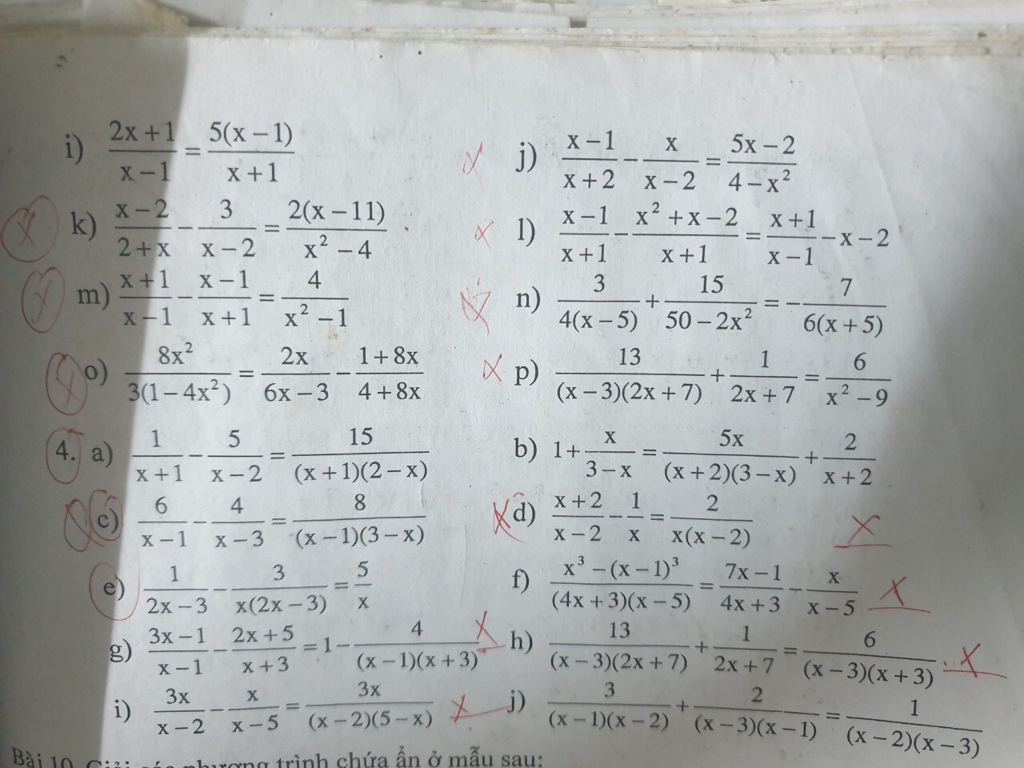 i) (2x+1)/(x−1) = 5(x−1)/(x+1)
j) (x−1)/(x+2) − x/(x−2) = (5x−2)/(4−x²)
k) (x−2)/(2+x) − 3/(x−2) = 2(x−11)/(x²−4)
l) (x−1)/(x+1) − (x²+x−2)/(x+1) = (x+1)/(x−1) − x − 2
m) (x+1)/(x−1) − (x−1)/(x+1) = 4/(x²−1)
n) 3/(4(x−5)) + 15/(50−2x²) = −7/(6(x+5))
o) 8x²/(3(1−4x²)) = 2x/(6x−3) − (1+8x)/(4+8x)
p) 13/((x−3)(2x+7)) + 1/(2x+7) = 6/(x²−9)
4. a) 1/(x+1) − 5/(x−2) = 15/((x+1)(2−x))
b) 1 + x/(3−x) = 5x/((x+2)(3−x)) + 2/(x+2)
c) 6/(x−1) − 4/(x−3) = 8/((x−1)(3−x))
d) (x+2)/(x−2) − 1/x = 2/(x(x−2))
e) 1/(2x−3) − 3/(x(2x−3)) = 5/x
f) (x³−(x−1)³)/((4x+3)(x−5)) = (7x−1)/(4x+3) − x/(x−5)
g) (3x−1)/(x−1) − (2x+5)/(x+3) = 1 − 4/((x−1)(x+3))
h) 13/((x−3)(2x+7)) + 1/(2x+7) = 6/((x−3)(x+3))
i) 3x/(x−2) − x/(x−5) = 3x/((x−2)(5−x))
j) 3/((x−1)(x−2)) + 2/((x−3)(x−1)) = 1/((x−2)(x−3))
Bài 10. Giải các phương trình chứa ẩn ở mẫu sau: